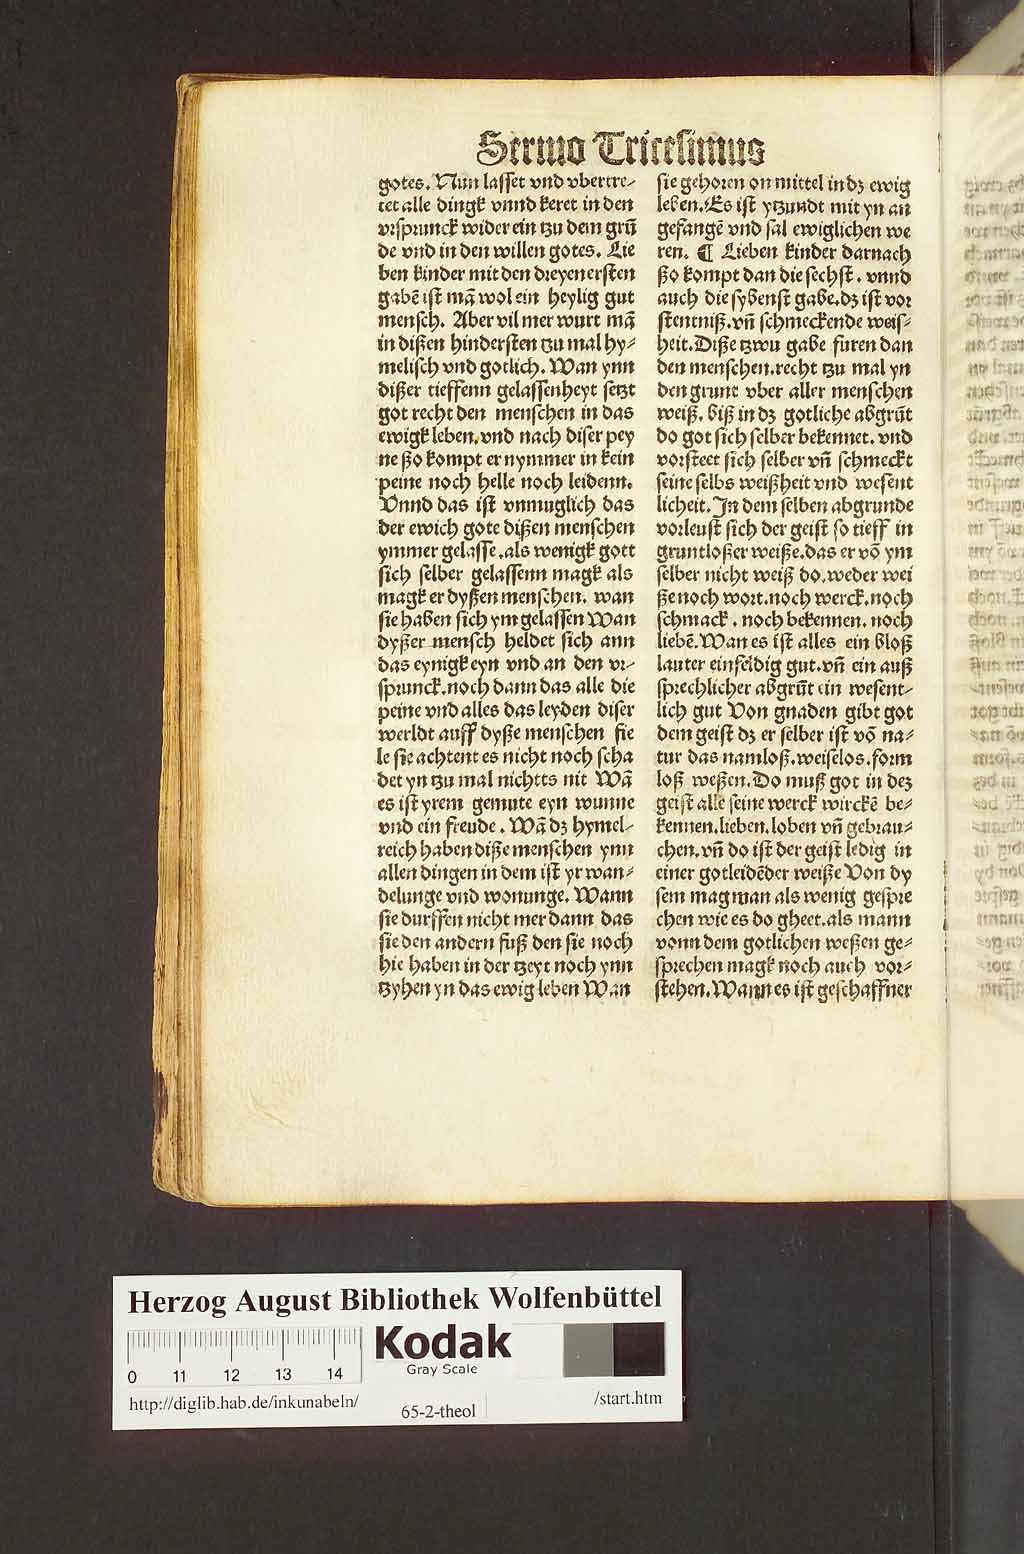 Sermo Tricesimus
gotes. Nun lasset vnd vbertre-
tet alle dingk vnnd keret in den
vrsprunck wider ein tzu dem grū
de vnd in den willen gotes. Lie
ben kinder mit den dreyen ersten
gabē ist mā wol ein heylig gut
mensch. Aber vil mer wurt mā
in dißen hindersten tzu mal hy-
melisch vnd gotlich. Wan ynn
dißer tieffenn gelassenheyt setzt
got recht den menschen in das
ewigk leben, vnd nach diser pey
ne ßo kompt er nymmer in kein
peine noch helle noch leidenn.
Vnnd das ist vnmuglich das
der ewich gote dißen menschen
ymmer gelasse. als wenigk gott
sich selber gelassenn magk als
magk er dyßen menschen. wan
sie haben sich ym gelassen Wan
dyßer mensch heldet sich ann
das eynigk eyn vnd an den vr-
sprunck. noch dann das alle die
peine vnd alles das leyden diser
werldt auff dyße menschen fie
le sie achtent es nicht noch scha
det yn tzu mal nichtts nit Wā
es ist yrem gemute eyn wunne
vnd ein freude. Wā dz hymel-
reich haben diße menschen ynn
allen dingen in dem ist yr wan-
delunge vnd wonunge. Wann
sie durffen nicht mer dann das
sie den andern fuß den sie noch
hie haben in der tzeyt noch ynn
tzyhen yn das ewig leben Wan
sie gehoren on mittel in dz ewig
leben. Es ist ytzundt mit yn an
gefangē vnd sal ewiglichen we
ren. ¶ Lieben kinder darnach
ßo kompt dan die sechst. vnnd
auch die sybenst gabe. dz ist vor
stentniß. vn̄ schmeckende weis-
heit. Diße tzwu gabe furen dan
den menschen. recht tzu mal yn
den grunt vber aller menschen
weiß. biß in dz gotliche abgrūt
do got sich selber bekennet. vnd
vorsteet sich selber vn̄ schmeckt
seine selbs weißheit vnd wesent
licheit. In dem selben abgrunde
vorleust sich der geist so tieff in
gruntloßer weiße. das er vō ym
selber nicht weiß do. weder wei
ße noch wort. noch werck. noch
schmack. noch bekennen. noch
liebē. Wan es ist alles ein bloß
lauter einfeldig gut. vn̄ ein auß
sprechlicher abgrūt ein wesent-
lich gut Von gnaden gibt got
dem geist dz er selber ist vō na-
tur das namloß. weiselos. form
loß weßen. Do muß got in dez
geist alle seine werck wirckē be-
kennen. lieben. loben vn̄ gebrau-
chen. vn̄ do ist der geist ledig in
einer gotleidēder weiße Von dy
sem mag man als wenig gespre
chen wie es do gheet. als mann
vonn dem gotlichen weßen ge-
sprechen magk noch auch vor-
stehen. Wann es ist geschaffner
Herzog August Bibliothek Wolfenbüttel
0 11 12 13 14
Kodak
Gray Scale
http://diglib.hab.de/inkunabeln/
65-2-theol
/start.htm